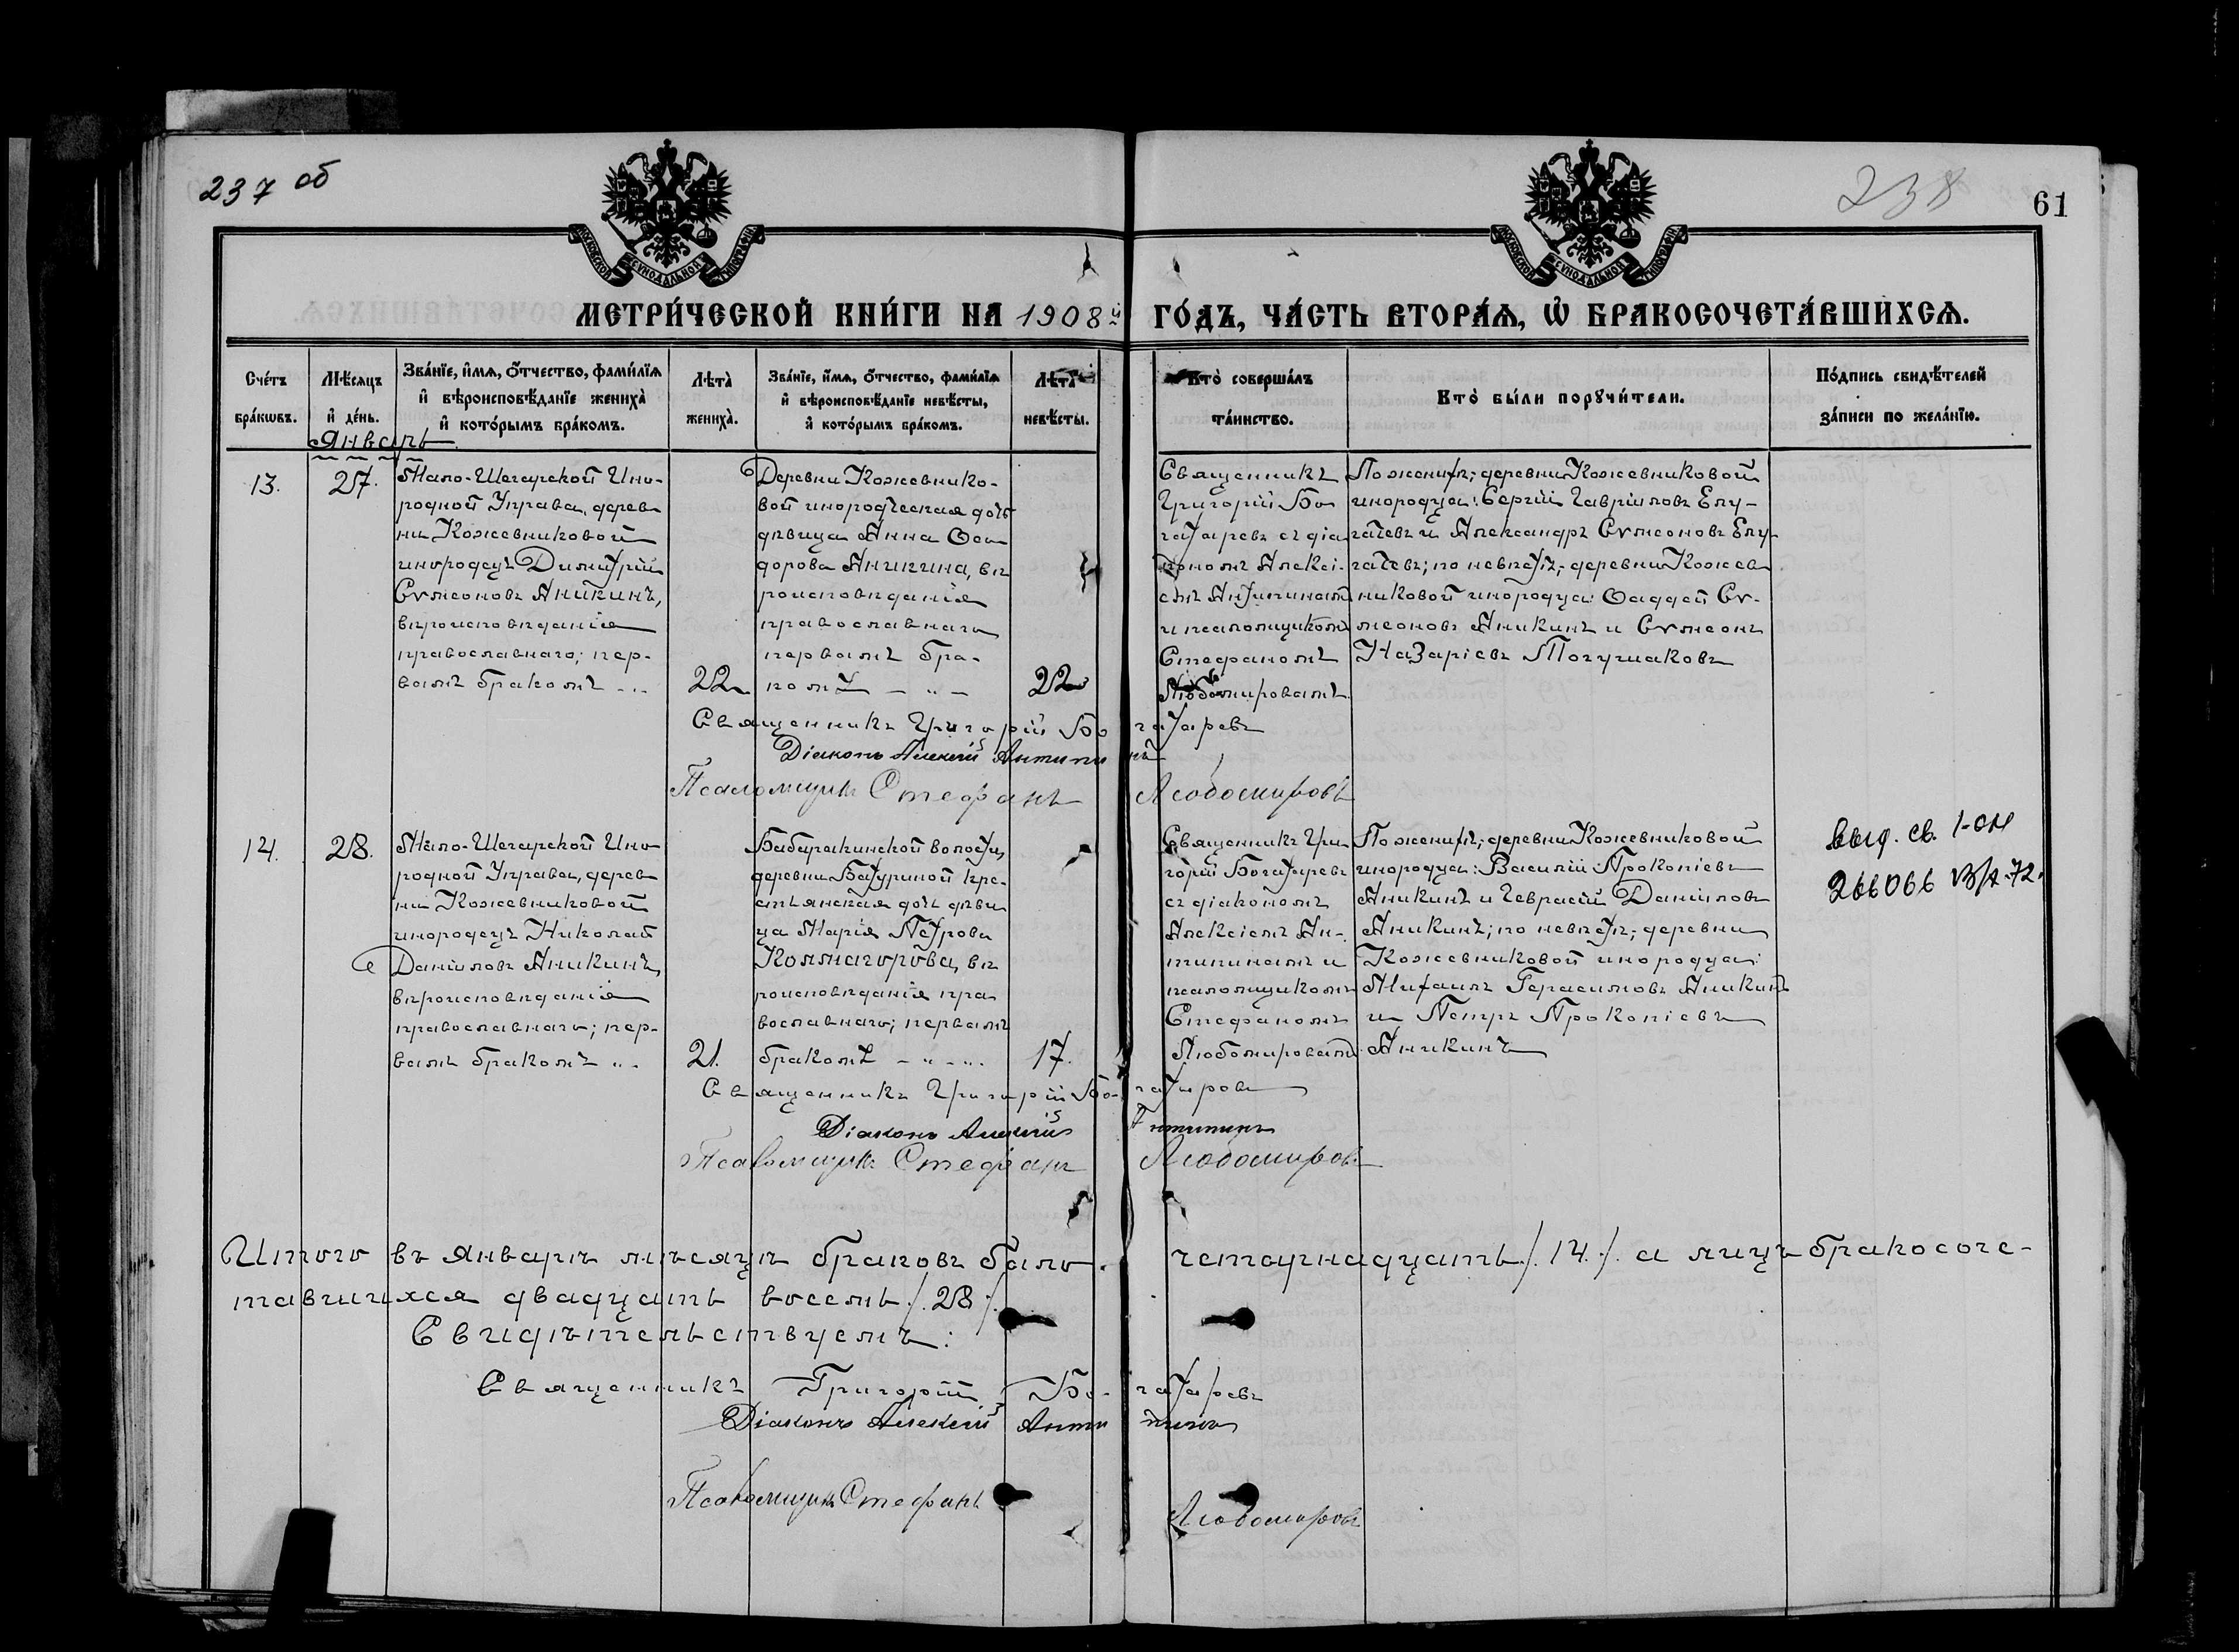 237 об
238
61
МОСКОВСКОЙ СѴНОДАЛЬНОЙ ТИПОГРАФІИ
МОСКОВСКОЙ СѴНОДАЛЬНОЙ ТИПОГРАФІИ
МЕТРИ́ЧЕСКОЙ КНИ́ГИ НА 1908й ГО́ДЪ, ЧА́СТЬ ВТОРА́Ѧ, Ѽ БРАКОСОЧЕТА́ВШИХСѦ.
Сче́тъ бра́кѡвъ.
Мѣ́сяцъ и де́нь.
Зва́нїе, и҆́мѧ, ѻ҆́тчество, фами́лїѧ
и҆ вѣроисповѣ́данїе жениха̀
и҆ кото́рымъ бра́комъ.
Лѣта̀ жениха̀.
Зва́нїе, и҆́мѧ, ѻ҆́тчество, фами́лїѧ
и҆ вѣроисповѣ́данїе невѣ́сты,
и҆ кото́рымъ бра́комъ.
Лѣта̀ невѣ́сты.
Кто̀ соверша́лъ та́инство.
Кто̀ бы́ли порꙋчи́тели.
По́дпись свидѣ́телей за́писи по жела́нїю.
Январь
13.
27.
Мало-Шегарской Ино-
родной Управы, дерев
ни Кожевниковой
инородецъ Димитрій
Сѵмеоновъ Аникинъ,
вѣроисповѣданія
православнаго; пер-
вымъ бракомъ
22
Деревни Кожевнико-
вой инородческая дочь
дѣвица Анна Ѳео
дорова Аникина, вѣ
роисповѣданія
православнаго
первымъ бра-
комъ
22
Священникъ
Григорій Бо
гатыревъ съ діа
кономъ Алексі-
емъ Антипинымъ
и псаломщикомъ
Стефаномъ
Любомировымъ.
По женихѣ; деревни Кожевниковой
инородцы: Сергій Гавріиловъ Елу-
гачевъ и Александръ Сѵмеоновъ Елу-
гачевъ; по невѣстѣ; деревни Кожев
никовой инородцы: Ѳаддей Сѵ-
меоновъ Аникинъ и Сѵмеонъ
Назаріевъ Тогушаковъ
Священникъ Григорій Богатыревъ
Діаконъ Алексій Антипинъ
Псаломщикъ Стефанъ Любомировъ
14.
28.
Мало-Шегарской Ино
родной Управы, дерев
ни Кожевниковой
инородецъ Николай
Даніиловъ Аникинъ,
вѣроисповѣданія
православнаго; пер-
вымъ бракомъ
21.
Бабарыкинской волости,
деревни Батуриной кре-
стьянская дочь дѣви
ца Марія Петрова
Колмагорова, вѣ
роисповѣданія пра
вославнаго; первымъ
бракомъ
17.
Священникъ Гри
горій Богатыревъ
съ діакономъ
Алексіемъ Ан-
типинымъ и
псаломщикомъ
Стефаномъ
Любомировымъ
По женихѣ; деревни Кожевниковой
инородцы: Василій Прокопіевъ
Аникинъ и Гаврасій Даніиловъ
Аникинъ; по невѣстѣ; деревни
Кожевниковой инородцы:
Михаилъ Герасимовъ Аникинъ
и Петръ Прокопіевъ
Аникинъ
выд. св. I-ОМ
266066
Священникъ Григорій Богатыревъ
Діаконъ Алексій Антипинъ
Псаломщикъ Стефанъ Любомировъ
Итого въ Январѣ мѣсяцѣ браковъ было четырнадцать /.14./. а лицъ бракосоче-
тавшихся двадцать восемь /.28./.
Свидѣтельствуемъ:
Священникъ Григорій Богатыревъ
Діаконъ Алексій Антипинъ
Псаломщикъ Стефанъ Любомировъ